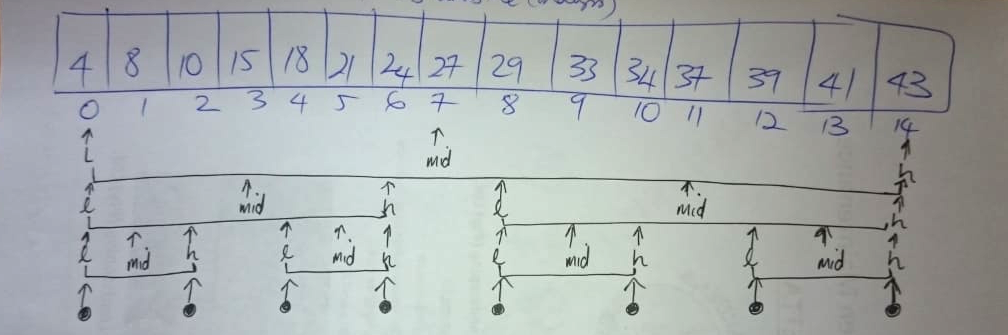 4 8 10 15 18 21 24 27 29 33 34 37 39 41 43
0 1 2 3 4 5 6 7 8 9 10 11 12 13 14
L mid h
l mid h l mid h
l mid h l mid h l mid h l mid h